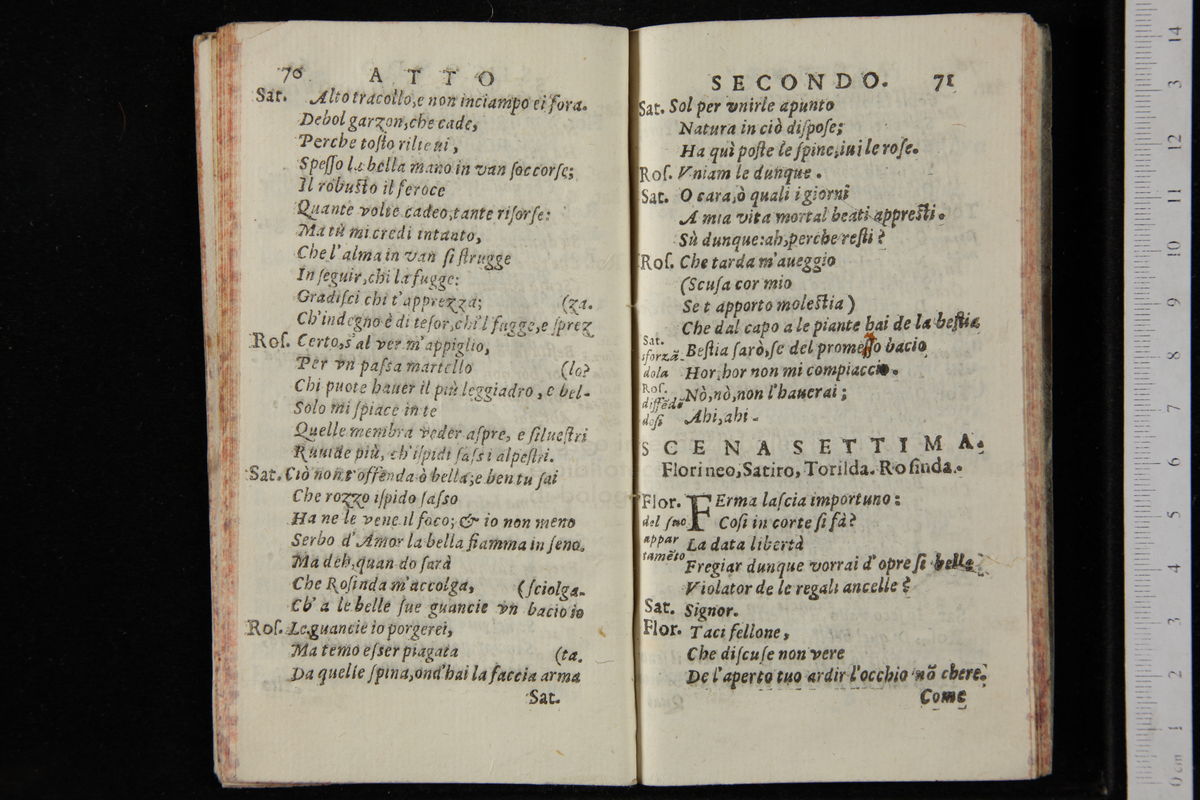 70 ATTO
Sat. Alto tracollo, e non inciampo ei fora.
Debol garzon, che cade,
Perche tosto rilieui,
Spesso la bella mano in van soccorse;
Il robusto il feroce
Quante volte cadeo, tante risorse:
Ma tù mi credi intanto,
Che l'alma in van si strugge
In seguir, chi la fugge:
Gradisci chi t'apprezza; (za.
Ch'indegno è di tesor, chi'l fugge, e sprez
Ros. Certo, s'al ver m'appiglio,
Per vn passa martello (lo?
Chi puote hauer il più leggiadro, e bel-
Solo mi spiace in te
Quelle membra veder aspre, e siluestri
Ruuide più, ch'ispidi sassi alpestri.
Sat. Ciò non t'offenda ò bella; e ben tu sai
Che rozzo ispido sasso
Ha ne le vene il foco; & io non meno
Serbo d'Amor la bella fiamma in seno.
Ma deh, quando sarà
Che Rosinda m'accolga, (sciolga.
Ch'a le belle sue guancie vn bacio io
Ros. Le guancie io porgerei,
Ma temo esser piagata (ta.
Da quelle spina, ond'hai la faccia arma
Sat.
SECONDO. 71
Sat. Sol per vnirle apunto
Natura in ciò dispose;
Ha quì poste le spine, iui le rose.
Ros. Vniam le dunque.
Sat. O cara, ò quali i giorni
A mia vita mortal beati appresti.
Sù dunque: ah, perche resti?
Ros. Che tarda m'aueggio
(Scusa cor mio
Se t apporto molestia)
Che dal capo a le piante hai de la bestia
Sat. sforzãdola Bestia sarò, se del promesso bacio
Hor, hor non mi compiaccio.
Ros. diffẽdẽdosi Nò, nò, non l'hauerai;
Ahi, ahi.
SCENA SETTIMA.
Florineo, Satiro, Torilda. Rosinda.
Flor. del suo appartamẽto FErma lascia importuno:
Cosi in corte si fà?
La data libertà
Fregiar dunque vorrai d'opre si belle
Violator de le regali ancelle?
Sat. Signor.
Flor. Taci fellone,
Che discuse non vere
De l'aperto tuo ardir l'occhio nõ chere.
Come